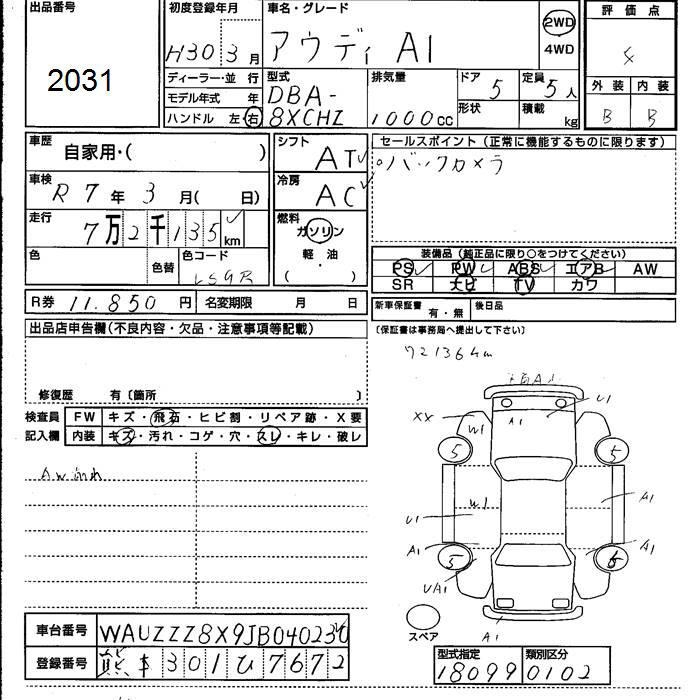 出品番号
2031
初度登録年月
H30 3月
車名・グレード
アウディ A1
2WD
4WD
評価点
4
外装 内装
B B
ディーラー・並 行
モデル年式 年
ハンドル 左・右
型式
DBA-
8XCHZ
排気量
1000cc
ドア 5
形状
定員 5人
積載 kg
車歴
自家用・( )
車検
R7年3月( 日)
走行
7万2千135km
色
色替
色コード
LS9R
シフト
AT
冷房
AC
燃料
ガソリン
軽・油
( )
セールスポイント(正常に機能するものに限ります)
バックカメラ
装備品(純正品に限り○をつけてください)
PS PW ABS エアB AW
SR ナビ TV カワ
R券 11.850円 名変期限 月 日
新車保証書 有・無 後日品
(保証書は事務局へ提出して下さい)
出品店申告欄(不良内容・欠品・注意事項等記載)
修復歴 有〔箇所 〕
72136km
検査員
記入欄
FW キズ・飛石・ヒビ割・リペア跡・X要
内装 キズ・汚れ・コゲ・穴・スレ・キレ・破レ
U1
XX
W1
A1
5
5
W1
A1
U1
A1
A1
5
UA1
スペア
A1
車台番号 WAUZZZ8X9JB040230
登録番号 熊本301ひ7672
型式指定 類別区分
18099 0102